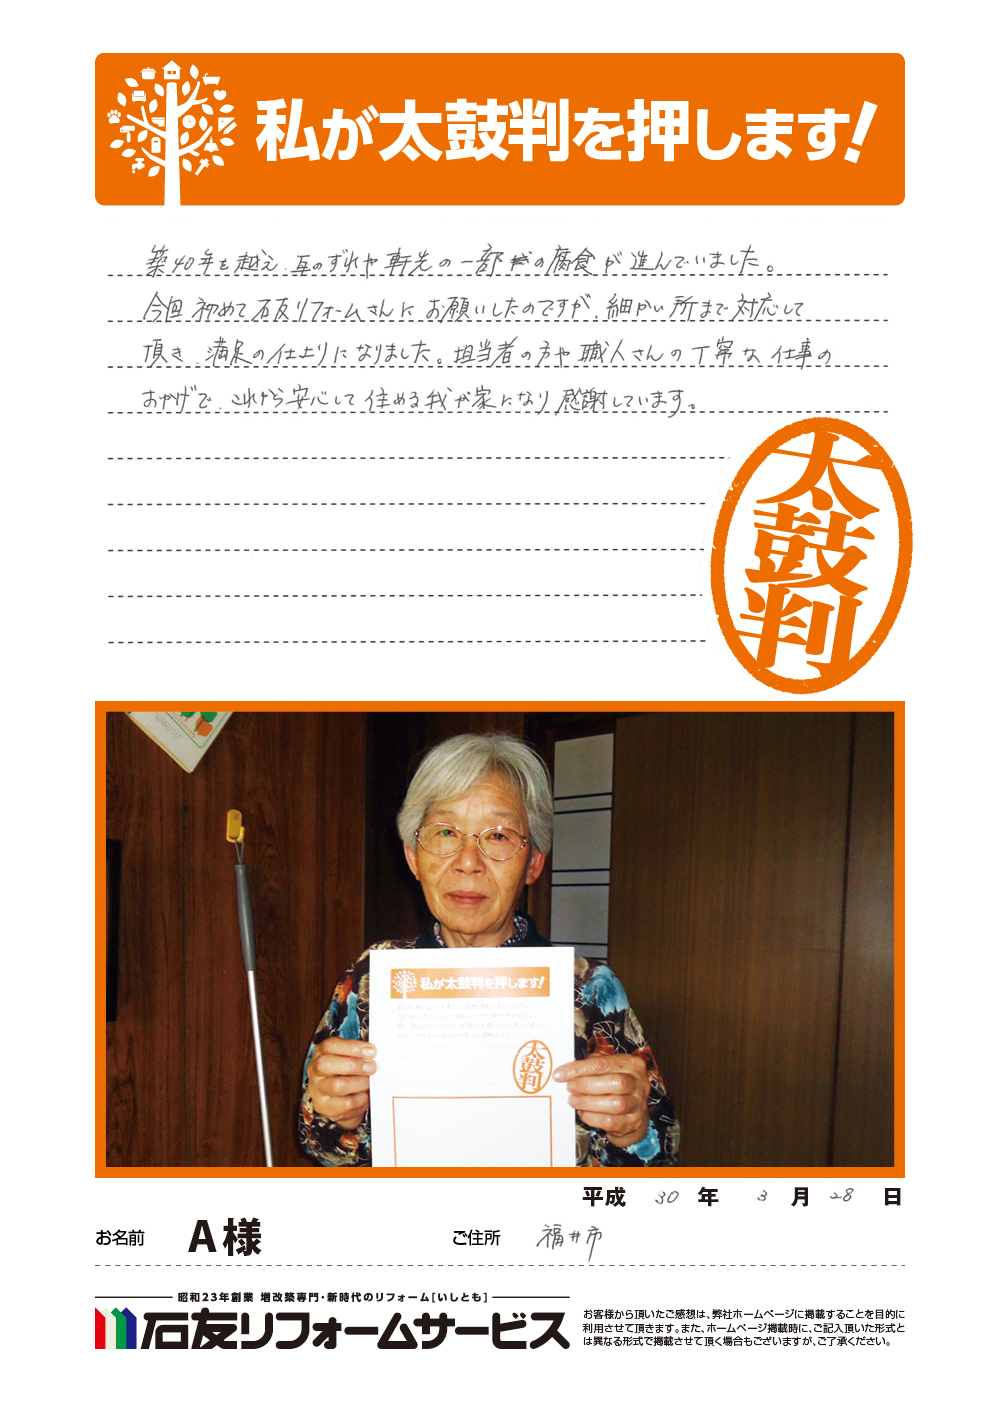 私が太鼓判を押します!
築40年を越え、瓦のずれや軒先の一部の腐食が進んでいました。
今回初めて石友リフォームさんにお願いしたのですが、細かい所まで対応して
頂き、満足の仕上りになりました。担当者の方や職人さんの丁寧な仕事の
おかげで、これから安心して住める我が家になり感謝しています。
太鼓判
私が太鼓判を押します!
太鼓判
平成 30 年 3 月 28 日
お名前 A様 ご住所 福井市
昭和23年創業 増改築専門・新時代のリフォーム[いしとも]
石友リフォームサービス
お客様から頂いたご感想は、弊社ホームページに掲載することを目的に
利用させて頂きます。また、ホームページ掲載時に、ご記入頂いた形式と
は異なる形式で掲載させて頂く場合もございますが、ご了承ください。